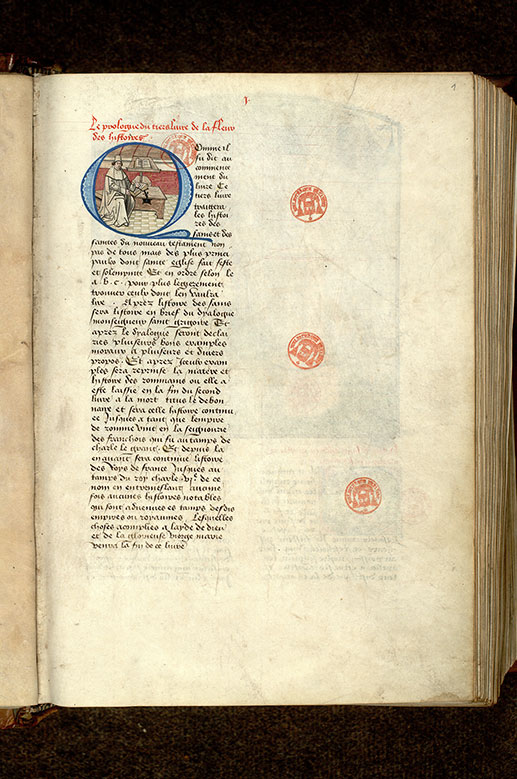 1
.I.
Le prologue du tiers liure de la fleur
des histoires
Comme il
fu dit au
commence
ment du
liure Ce
tiers liure
traittera
les histoi
res des
sains et des
saintes du nouueau testament non
pas de tous mais des plus princi
paulx dont sainte eglise fait feste
et solempnite Et en ordre selon le
a . b . c . pour plus legierement
trouuer ceulx dont len vauldra
lire . Aprez listoire des sains
sera listoire en brief du dyalogue
monseigneur saint grigoire Et
aprez le dyalogue seront declai
ries pluseurs bons examples
moraux a pluseurs et diuers
propos . Et aprez iceulx exam
ples sera reprinse la matere et
histoire des rommains ou elle a
este laissie en la fin du second
liure a la mort titus le debon
naire et sera celle histoire continu
ee Jusques a tant que lempire
de romme vint en la seignourie
des franchois qui fu au tamps de
charle le grant . Et depuis la
en auant sera continue listoire
des Roys de france Jusques au
tamps du roy charle .VI.e de ce
nom en entremeslant aucune
fois aucunes histoires notables
qui sont aduenues es tamps desdis
empires ou royaumes Lesquelles
choses acomplies a layde de dieu
et de la glorieuse vierge marie
venra la fin de ce liure